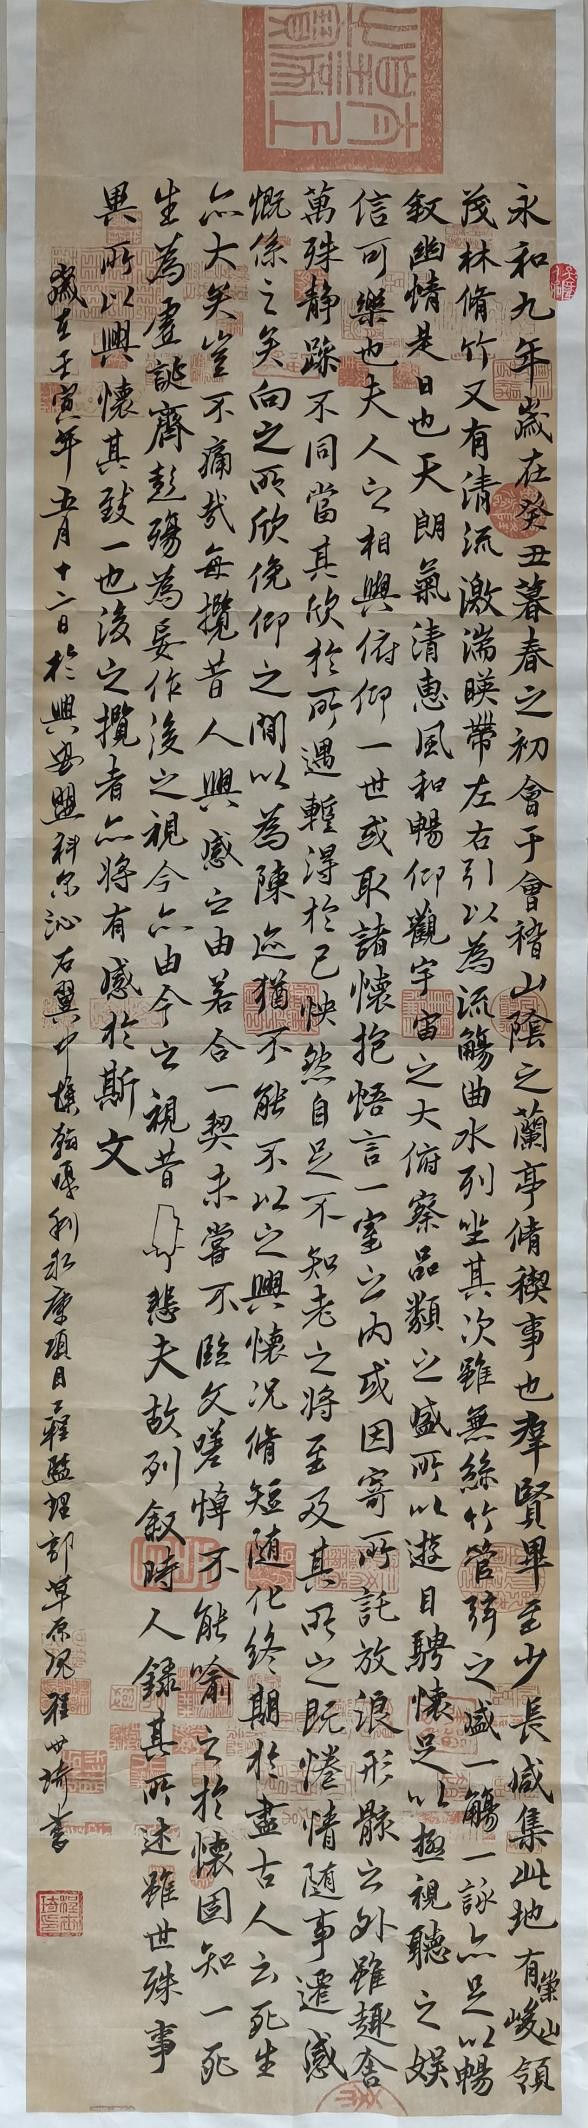 永和九年歲在癸丑暮春之初會于會稽山陰之蘭亭脩稧事也羣賢畢至少長咸集此地有崇山峻領
茂林脩竹又有清流激湍暎帶左右引以為流觴曲水列坐其次雖無絲竹管弦之盛一觴一詠亦足以暢
叙幽情是日也天朗氣清惠風和暢仰觀宇宙之大俯察品類之盛所以遊目騁懷足以極視聽之娛
信可樂也夫人之相與俯仰一世或取諸懷抱悟言一室之內或因寄所託放浪形骸之外雖趣舍
萬殊静躁不同當其欣於所遇蹔得於己怏然自足不知老之將至及其所之既惓情随事遷感
慨係之矣向之所欣俛仰之閒以為陳迹猶不能不以之興懷况脩短随化終期於盡古人云死生
亦大矣豈不痛哉每攬昔人興感之由若合一契未嘗不臨文嗟悼不能喻之於懷固知一死
生為虛誕齊彭殤為妄作後之視今亦由今之視昔 悲夫故列叙時人錄其所述雖世殊事
異所以興懷其致一也後之攬者亦將有感於斯文
歲在壬寅年五月十二日於興安盟科尔沁右翼中旗翰嘎利水庫項目工程監理部草原 程世琦書